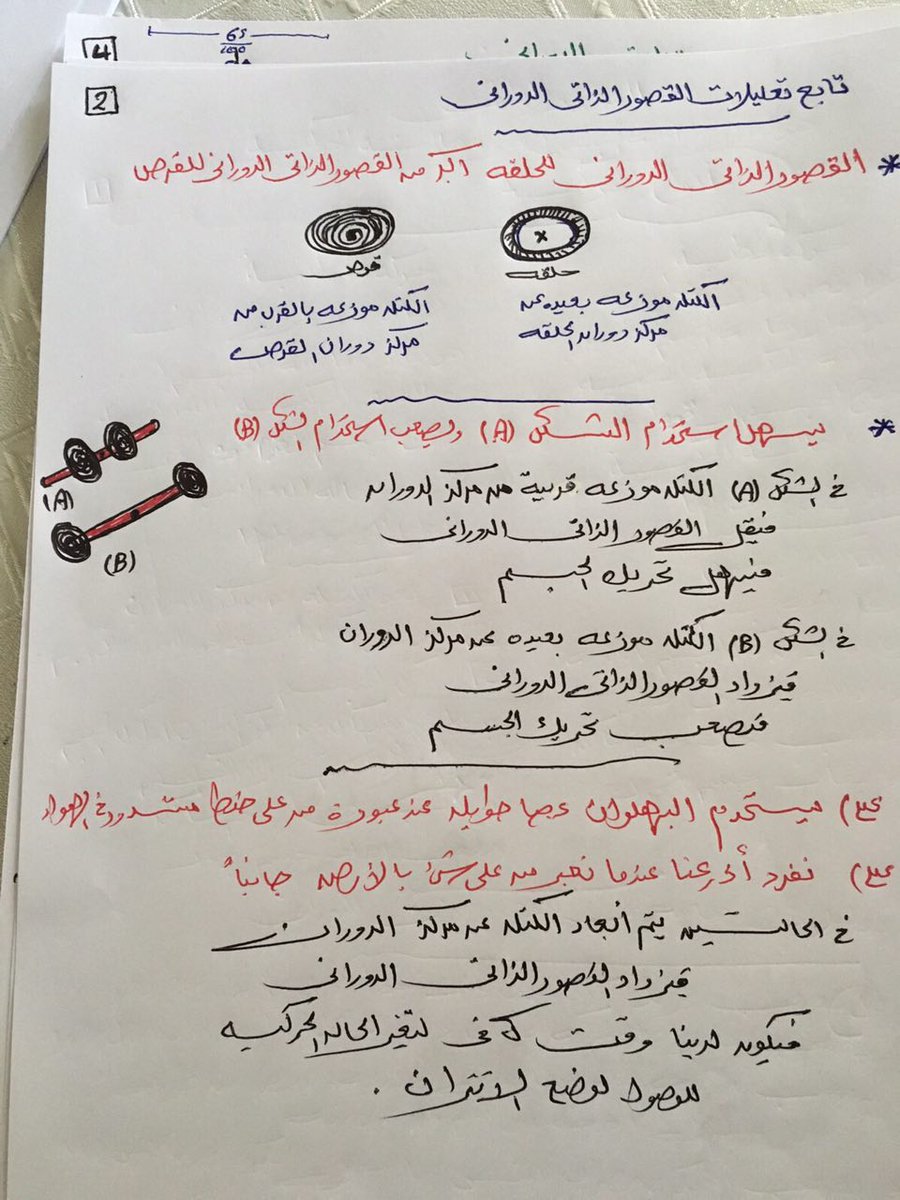 4
2
تابع تعليلات القصور الذاتى الدورانى
* القصور الذاتى الدورانى للحلقه أكبر من القصور الذاتى الدورانى للقرص
حلقه
الكتله موزعه بعيده عن
مركز دوران الحلقه
قرص
الكتله موزعه بالقرب من
مركز دوران القرص
* يسهل استخدام الشكل (A) ويصعب استخدام الشكل (B)
(A)
(B)
فى الشكل (A) الكتله موزعه قريبة من مركز الدوران
فيقل القصور الذاتى الدورانى
فيسهل تحريك الجسم
فى الشكل (B) الكتله موزعه بعيده عن مركز الدوران
فيزداد القصور الذاتى الدورانى
فيصعب تحريك الجسم
علل) يستخدم البهلوان عصا طويله عند عبورة من على خيط مشدود فى الهواء
علل) نفرد أذرعنا عندما نعبر من على شئ بالأرض جانباً
فى الحالتين يتم أبعاد الكتله عن مركز الدوران
فيزداد القصور الذاتى الدورانى
فيكون لدينا وقت كافى لتغير الحاله الحركيه
للوصول لوضع الاتزان .